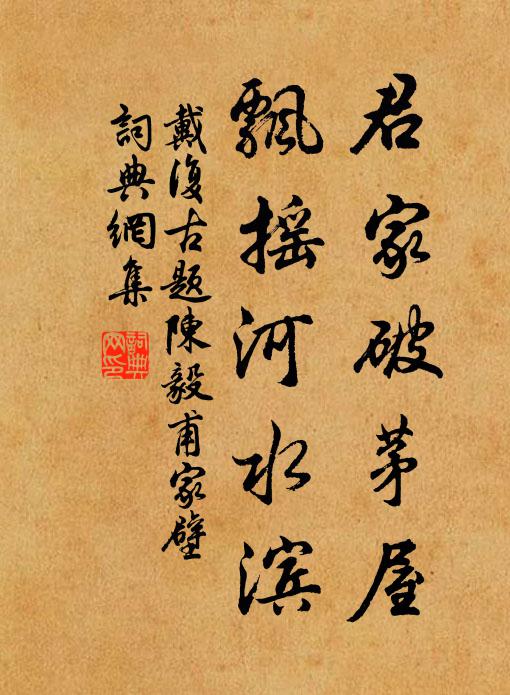 君家破茅屋
飄摇河水滨
戴復古題陳毅甫家壁
詞典網集
詞典网印